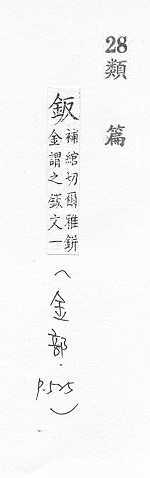 28
類篇
鈑補綰切爾雅鉼
金謂之鈑文一
(金部.
p.525)